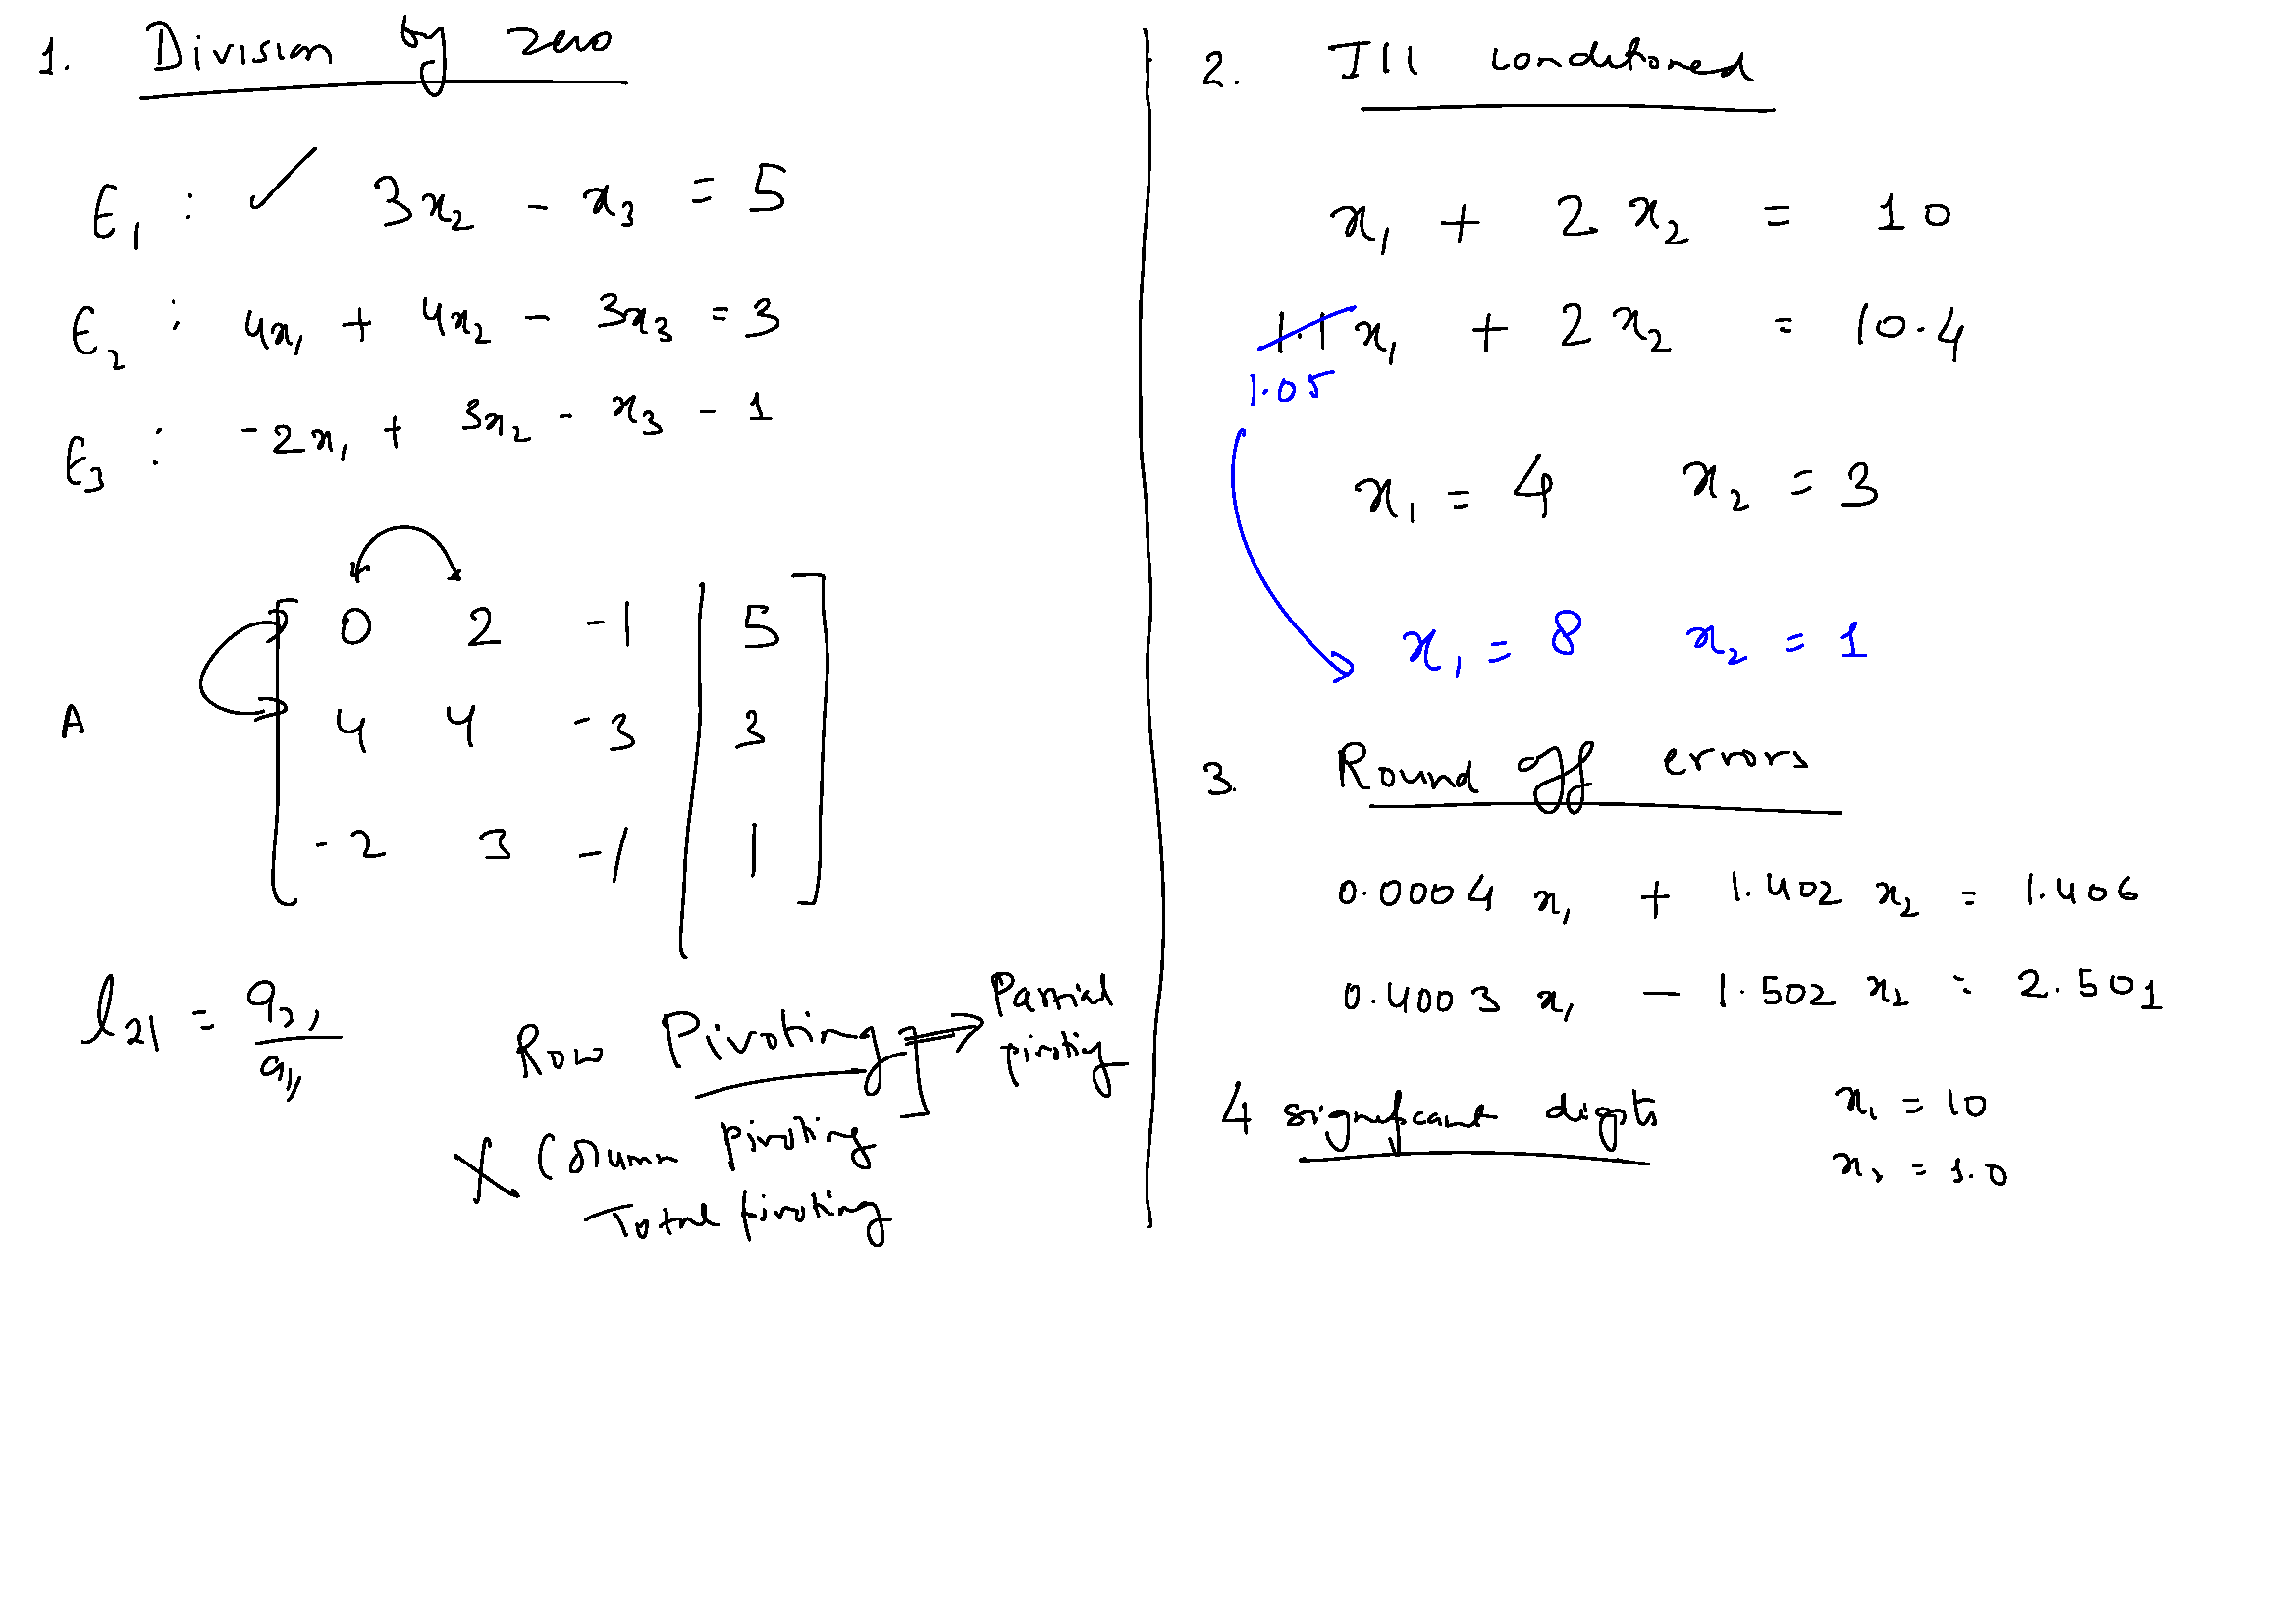 1. Division by zero
E₁ : ✓ 3x₂ - x₃ = 5
E₂ : 4x₁ + 4x₂ - 3x₃ = 3
E₃ : -2x₁ + 3x₂ - x₃ - 1
A
0 2 -1 | 5
4 4 -3 | 3
-2 3 -1 | 1
l₂₁ = a₂₁ / a₁₁
Row Pivoting
Partial pivoting
X Column pivoting
Total pivoting
2. Ill conditioned
x₁ + 2x₂ = 10
1.1x₁ + 2x₂ = 10.4
1.05
x₁ = 4 x₂ = 3
x₁ = 8 x₂ = 1
3. Round off errors
0.0004 x₁ + 1.402 x₂ = 1.406
0.4003 x₁ - 1.502 x₂ = 2.501
4 significant digits x₁ = 10
x₂ = 1.0